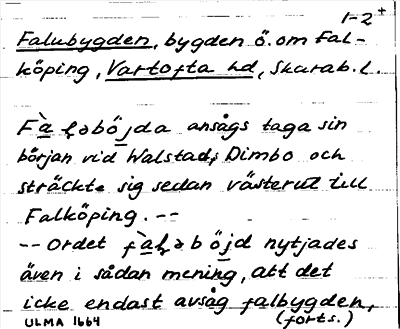 1-2+
Falubygden, bygden ö. om Fal-
köping, Vartofta hd, Skarab. l.
Fàɫəböjda ansågs taga sin
början vid Walstad, Dimbo och
sträckte sig sedan västerut till
Falköping. --
-- Ordet fàɫəböjd nytjades
även i sådan mening, att det
icke endast avsåg falbygden,
ULMA 1664 (forts.)